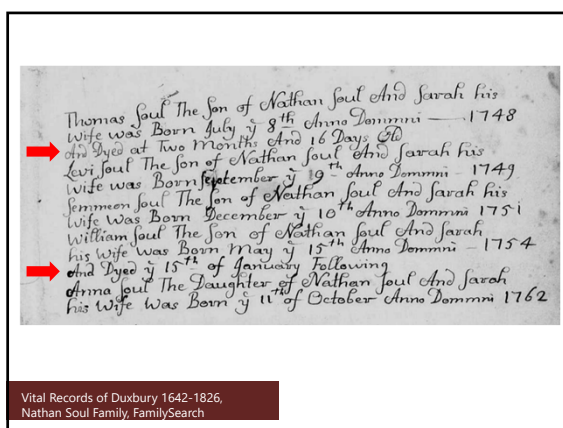 Thomas Soul The Son of Nathan Soul And Sarah his
Wife was Born July ÿ 8th Anno Dommni — 1748
And Dyed at Two Months And 16 Days Old
Levi Soul The Son of Nathan Soul And Sarah his
Wife was Born September ÿ 19th Anno Dommni - 1749
Semmeon Soul The Son of Nathan Soul And Sarah his
Wife Was Born December ÿ 10th Anno Dommni 1751
William Soul The Son of Nathan Soul And Sarah
his Wife Was Born May ÿ 15th Anno Dommni - 1754
And Dyed ÿ 15th of January Following
Anna Soul The Daughter of Nathan Soul And Sarah
his Wife Was Born ÿ 11th of October Anno Dommni 1762
Vital Records of Duxbury 1642-1826,
Nathan Soul Family, FamilySearch